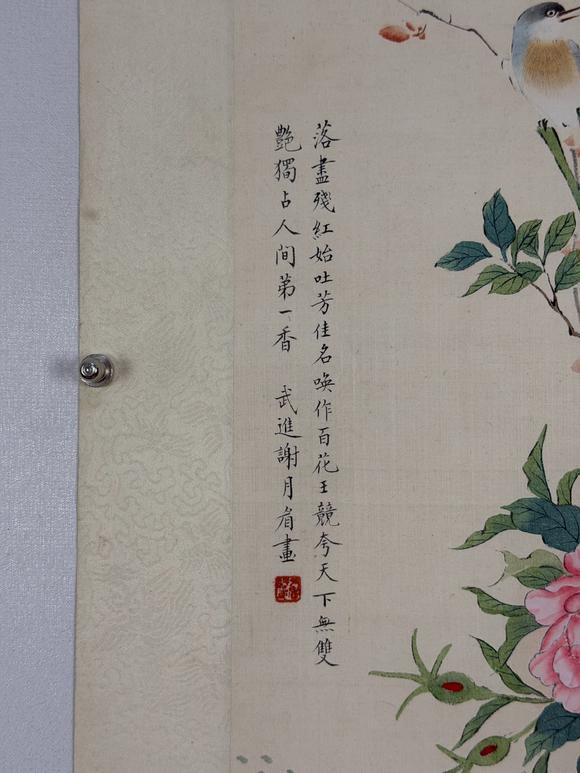 落盡殘紅始吐芳佳名喚作百花王競夸天下無雙
艷獨占人间第一香　武進謝月眉畫